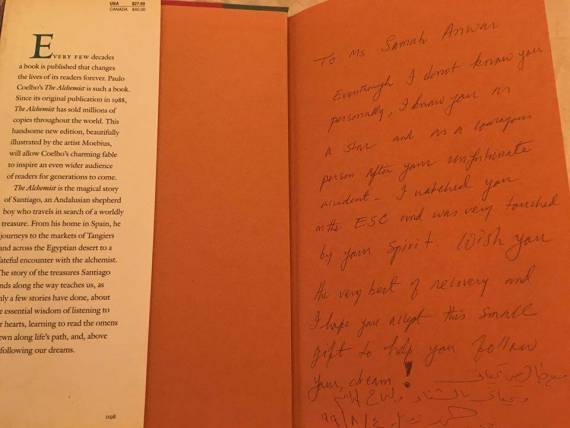 USA $27.50
CANADA $40.00
EVERY FEW decades
a book is published that changes
the lives of its readers forever. Paulo
Coelho's The Alchemist is such a book.
Since its original publication in 1988,
The Alchemist has sold millions of
copies throughout the world. This
handsome new edition, beautifully
illustrated by the artist Moebius,
will allow Coelho's charming fable
to inspire an even wider audience
of readers for generations to come.
The Alchemist is the magical story
of Santiago, an Andalusian shepherd
boy who travels in search of a worldly
treasure. From his home in Spain, he
journeys to the markets of Tangiers
and across the Egyptian desert to a
fateful encounter with the alchemist.
The story of the treasures Santiago
nds along the way teaches us, as
nly a few stories have done, about
e essential wisdom of listening to
r hearts, learning to read the omens
ewn along life's path, and, above
following our dreams.
1198
To Ms Samah Anwar
Eventhough I donot know you
personally, I know you as
a star and as a courageous
person after your unfortunate
accident. I watched you
on the ESC and was very touched
by your spirit Wish you
the very best of recovery and
I hope you accept this small
gift to help you follow
your dream!